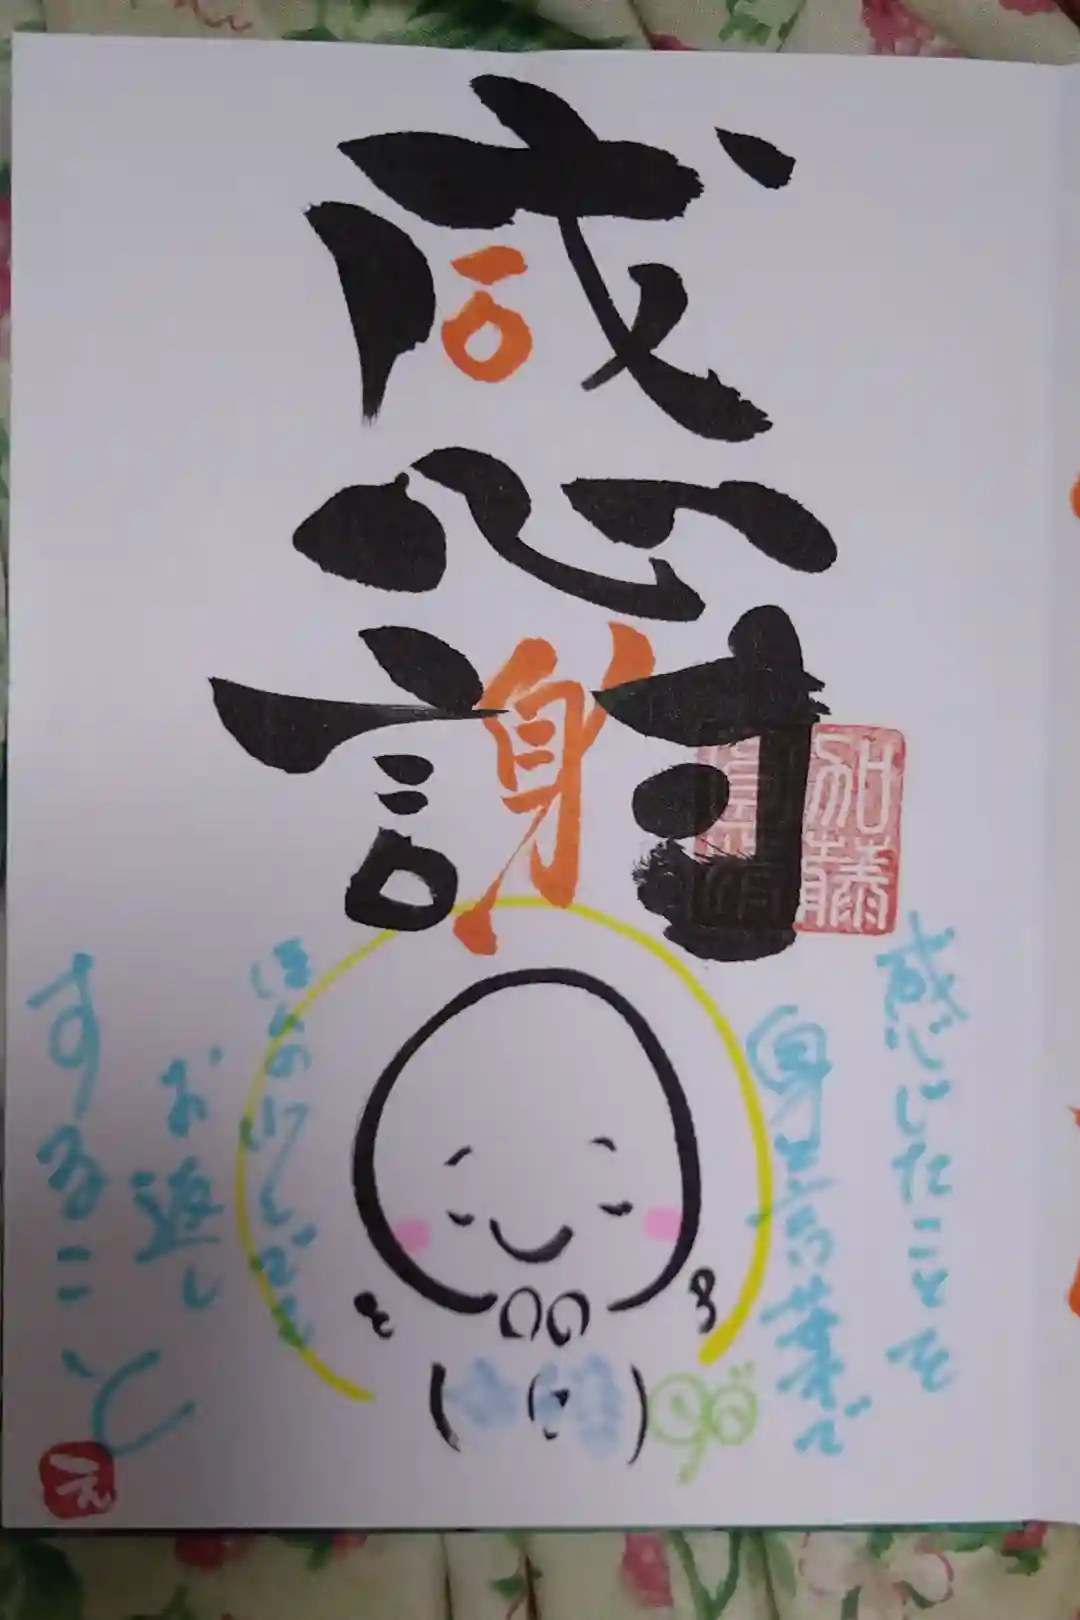 感謝
感じたことを
身と言葉で
ほんの少しでも
お返し
すること
加藤
え